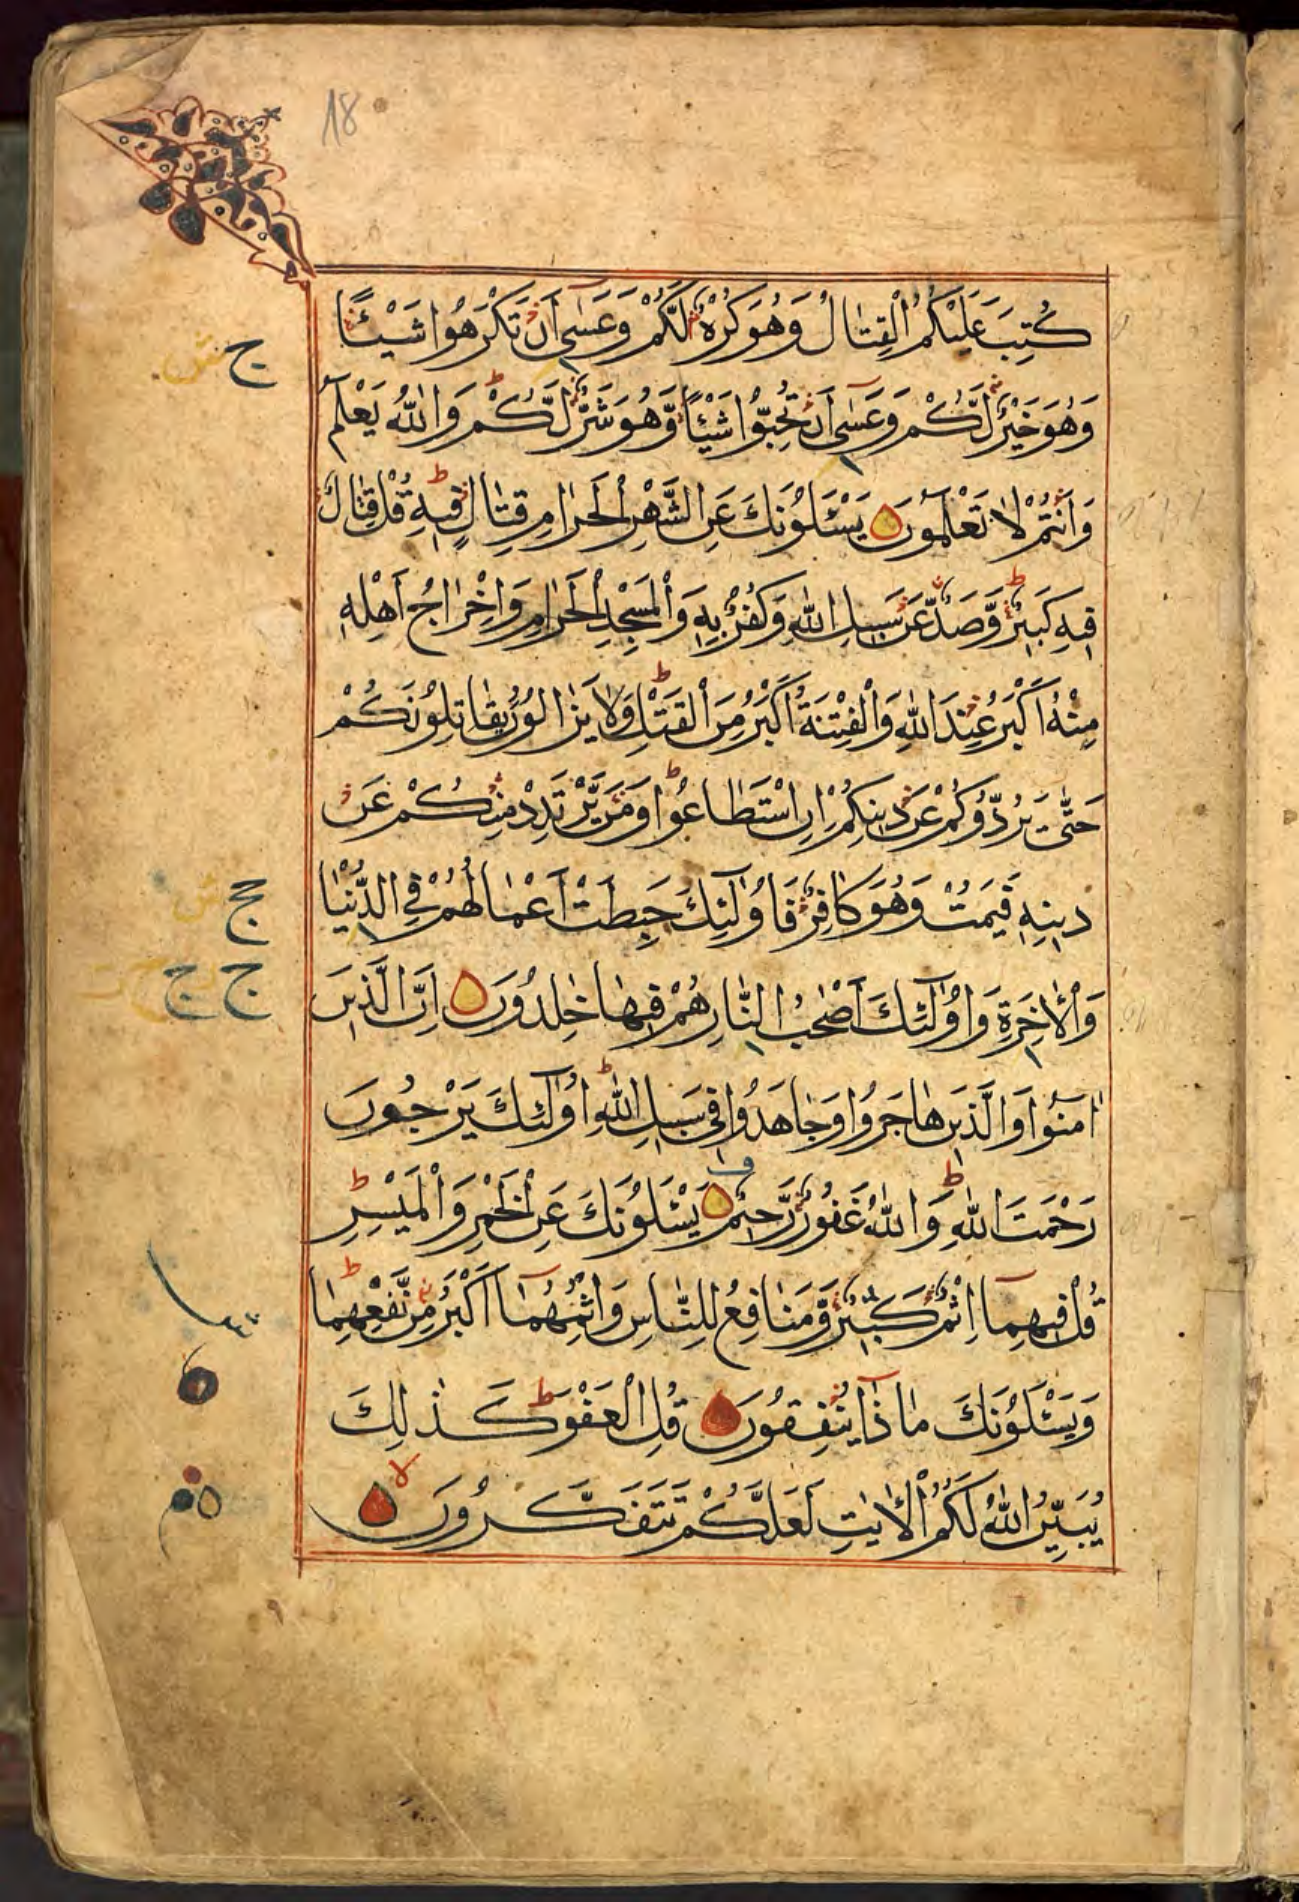 18
كُتِبَ عَلَيْكُمُ الْقِتٰالُ وَهُوَ كُرْهٌ لَكُمْ وَعَسٰى اَنْ تَكْرَهُوا شَيْئًا
وَهُوَ خَيْرٌ لَكُمْ وَعَسٰى اَنْ تُحِبُّوا شَيْئًا وَهُوَ شَرٌّ لَكُمْ وَاللّٰهُ يَعْلَمُ
وَاَنْتُمْ لٰا تَعْلَمُونَ يَسْئَلُوْنَكَ عَنِ الشَّهْرِ الْحَرٰامِ قِتٰالٍ فِيهِ قُلْ قِتٰالٌ
فِيهِ كَبِيرٌ وَّصَدٌّ عَنْ سَبِيلِ اللّٰهِ وَكُفْرٌ بِهِ وَالْمَسْجِدِ الْحَرٰامِ وَاِخْرٰاجُ اَهْلِهِ
مِنْهُ اَكْبَرُ عِنْدَ اللّٰهِ وَالْفِتْنَةُ اَكْبَرُ مِنَ الْقَتْلِ وَلٰا يَزٰالُوْنَ يُقٰاتِلُوْنَكُمْ
حَتّٰى يَرُدُّوْكُمْ عَنْ دِينِكُمْ اِنِ اسْتَطٰاعُوْا وَمَنْ يَّرْتَدِدْ مِنْكُمْ عَنْ
دِينِهِ فَيَمُتْ وَهُوَ كٰافِرٌ فَاُولٰٓئِكَ حَبِطَتْ اَعْمٰالُهُمْ فِي الدُّنْيٰا
وَالْاٰخِرَةِ وَاُولٰٓئِكَ اَصْحٰبُ النّٰارِ هُمْ فِيهٰا خٰلِدُوْنَ اِنَّ الَّذِينَ
اٰمَنُوْا وَالَّذِينَ هٰاجَرُوْا وَجٰاهَدُوْا فِي سَبِيلِ اللّٰهِ اُولٰٓئِكَ يَرْجُوْنَ
رَحْمَتَ اللّٰهِ وَاللّٰهُ غَفُوْرٌ رَّحِيمٌ يَسْئَلُوْنَكَ عَنِ الْخَمْرِ وَالْمَيْسِرِ
قُلْ فِيهِمٰٓا اِثْمٌ كَبِيرٌ وَّمَنٰافِعُ لِلنّٰاسِ وَاِثْمُهُمٰٓا اَكْبَرُ مِنْ نَّفْعِهِمٰا
وَيَسْئَلُوْنَكَ مٰا ذٰا يُنْفِقُوْنَ قُلِ الْعَفْوَ كَذٰلِكَ
يُبَيِّنُ اللّٰهُ لَكُمُ الْاٰيٰتِ لَعَلَّكُمْ تَتَفَكَّرُوْنَ